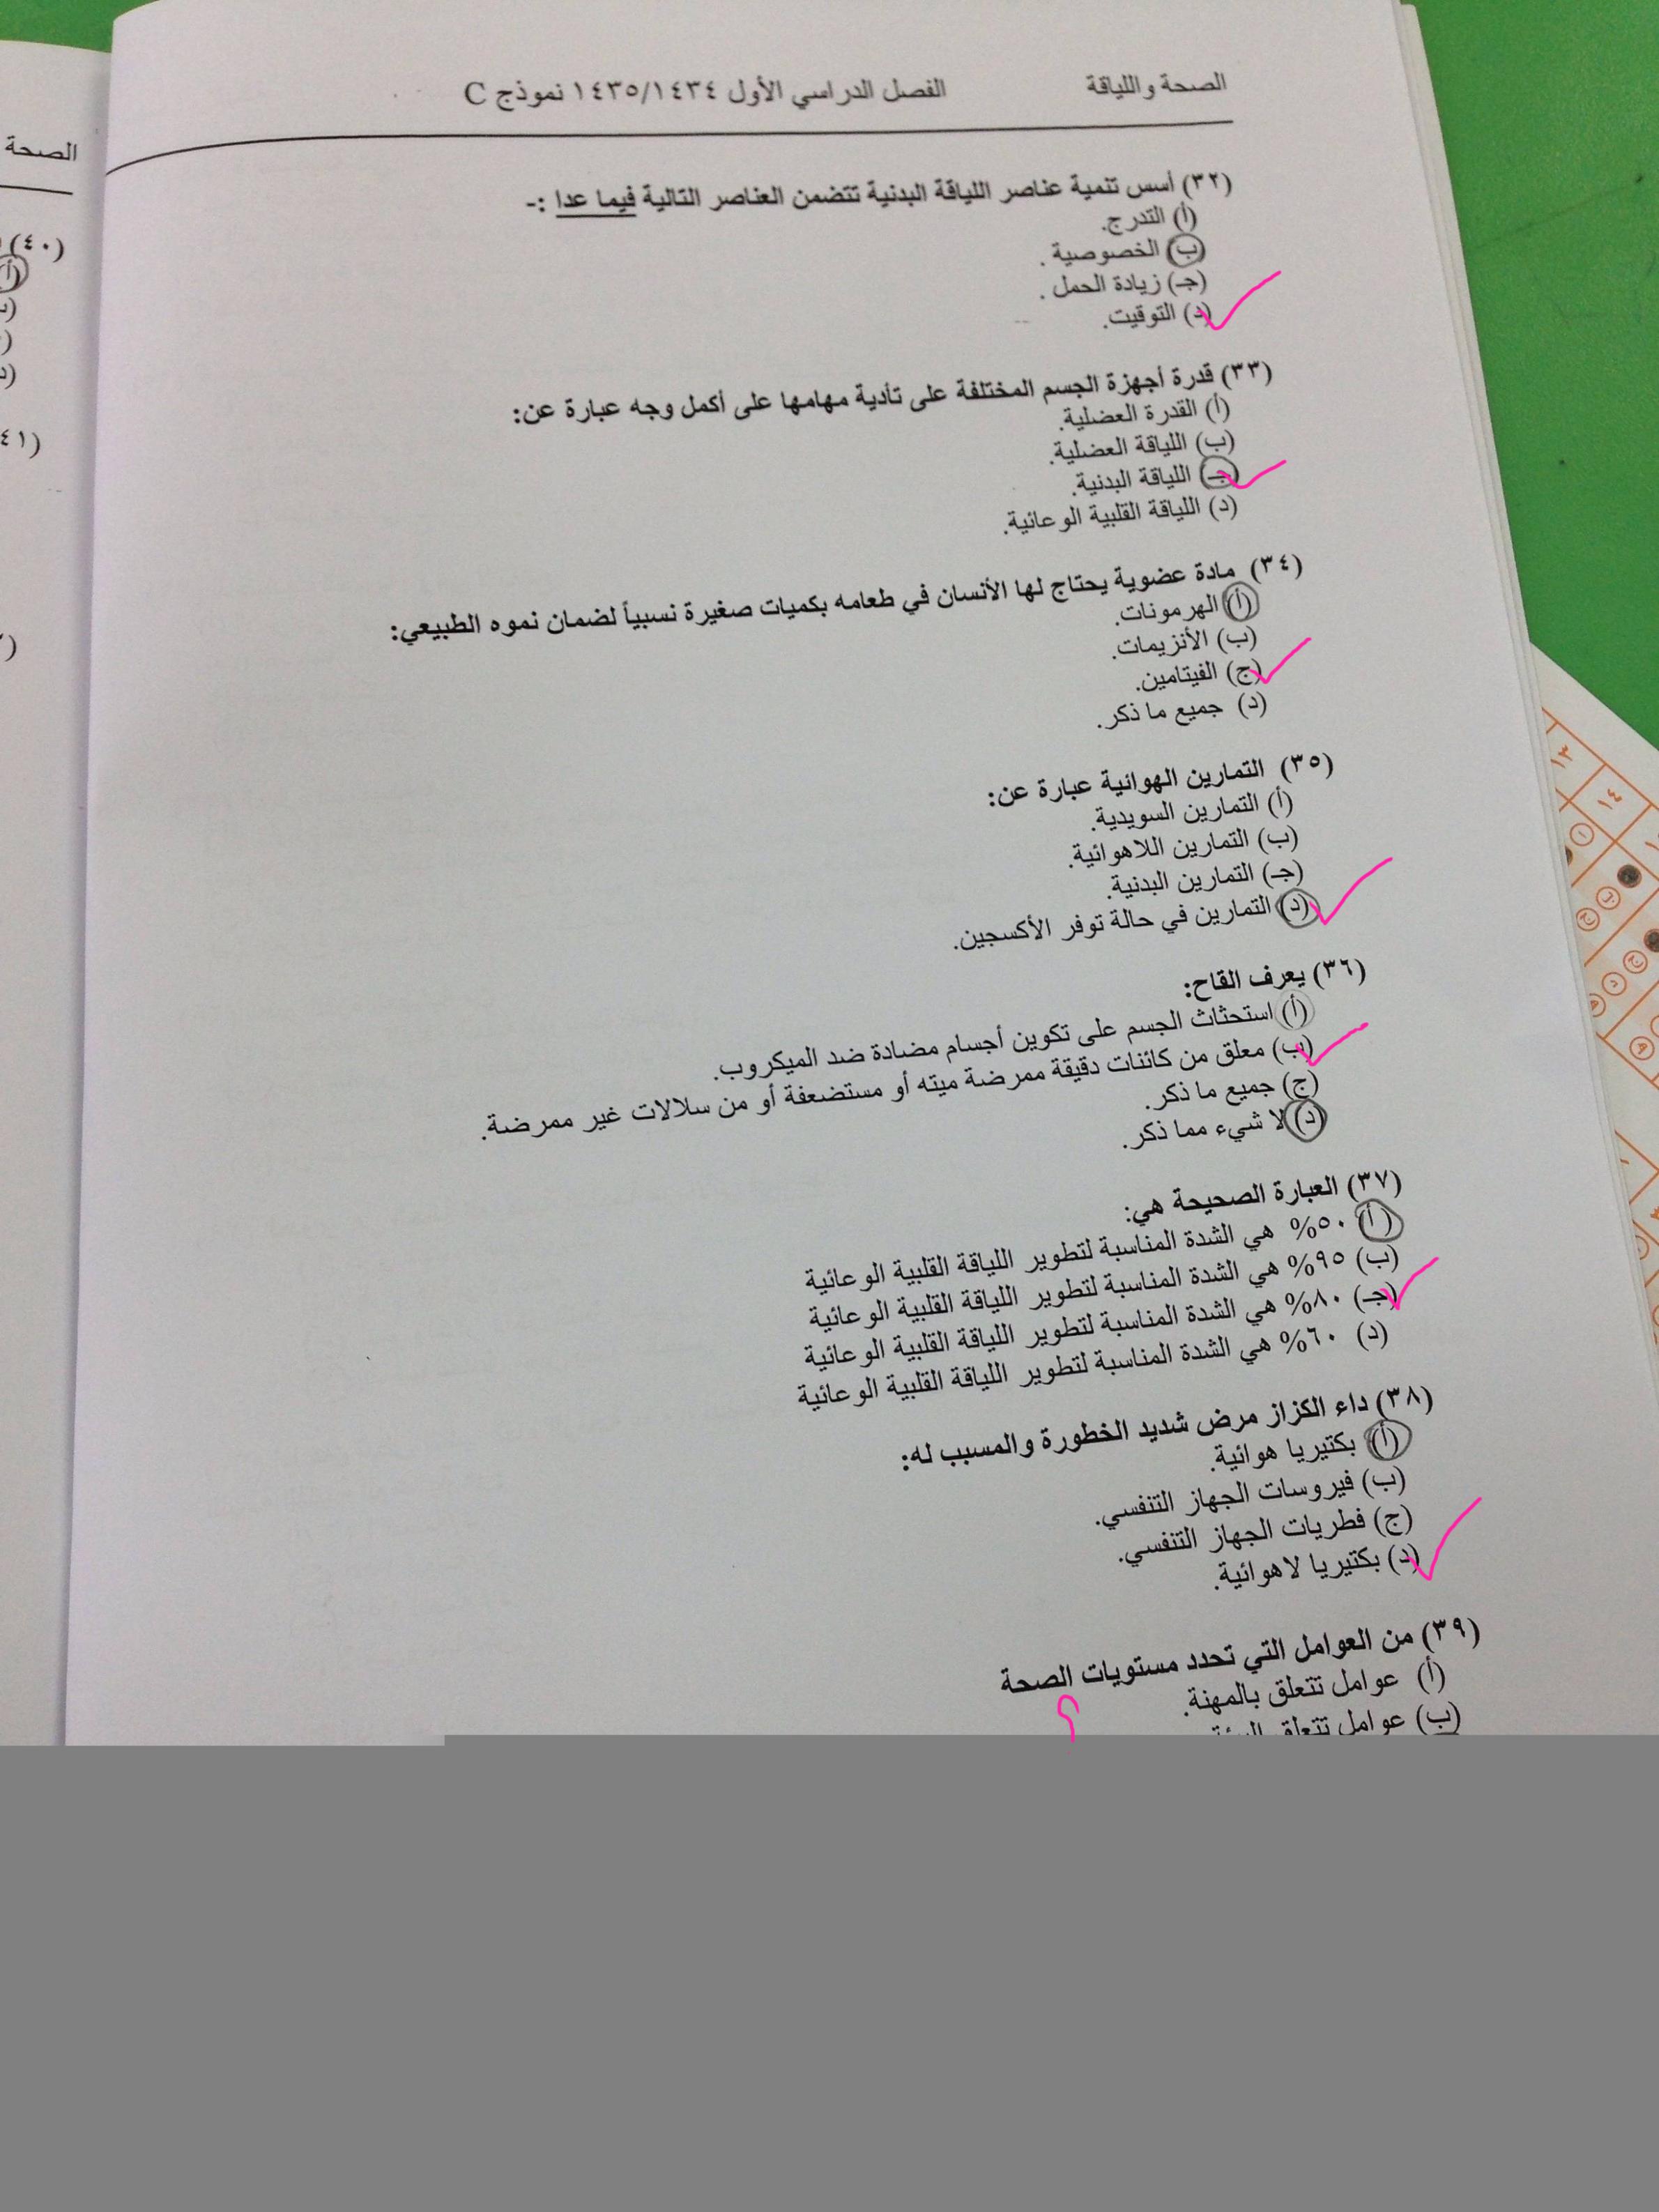 الصحة واللياقة
الفصل الدراسي الأول ١٤٣٥/١٤٣٤ نموذج C
(٣٢) أسس تنمية عناصر اللياقة البدنية تتضمن العناصر التالية فيما عدا :-
(أ) التدرج.
(ب) الخصوصية .
(جـ) زيادة الحمل .
(د) التوقيت.
(٣٣) قدرة أجهزة الجسم المختلفة على تأدية مهامها على أكمل وجه عبارة عن:
(أ) القدرة العضلية.
(ب) اللياقة العضلية.
(جـ) اللياقة البدنية.
(د) اللياقة القلبية الوعائية.
(٣٤) مادة عضوية يحتاج لها الأنسان في طعامه بكميات صغيرة نسبياً لضمان نموه الطبيعي:
(أ) الهرمونات.
(ب) الأنزيمات.
(ج) الفيتامين.
(د) جميع ما ذكر.
(٣٥) التمارين الهوائية عبارة عن:
(أ) التمارين السويدية.
(ب) التمارين اللاهوائية.
(جـ) التمارين البدنية.
(د) التمارين في حالة توفر الأكسجين.
(٣٦) يعرف القاح:
(أ) استحثاث الجسم على تكوين أجسام مضادة ضد الميكروب.
(ب) معلق من كائنات دقيقة ممرضة ميته أو مستضعفة أو من سلالات غير ممرضة.
(ج) جميع ما ذكر.
(د) لا شيء مما ذكر.
(٣٧) العبارة الصحيحة هي:
(أ) ٥٠% هي الشدة المناسبة لتطوير اللياقة القلبية الوعائية
(ب) ٩٥% هي الشدة المناسبة لتطوير اللياقة القلبية الوعائية
(جـ) ٨٠% هي الشدة المناسبة لتطوير اللياقة القلبية الوعائية
(د) ٦٠% هي الشدة المناسبة لتطوير اللياقة القلبية الوعائية
(٣٨) داء الكزاز مرض شديد الخطورة والمسبب له:
(أ) بكتيريا هوائية.
(ب) فيروسات الجهاز التنفسي.
(ج) فطريات الجهاز التنفسي.
(د) بكتيريا لاهوائية.
(٣٩) من العوامل التي تحدد مستويات الصحة
(أ) عوامل تتعلق بالمهنة.
(ب) عوامل تتعلق
؟
الصحة
(٤٠)
(أ)
(٤١)
١٣
١٤